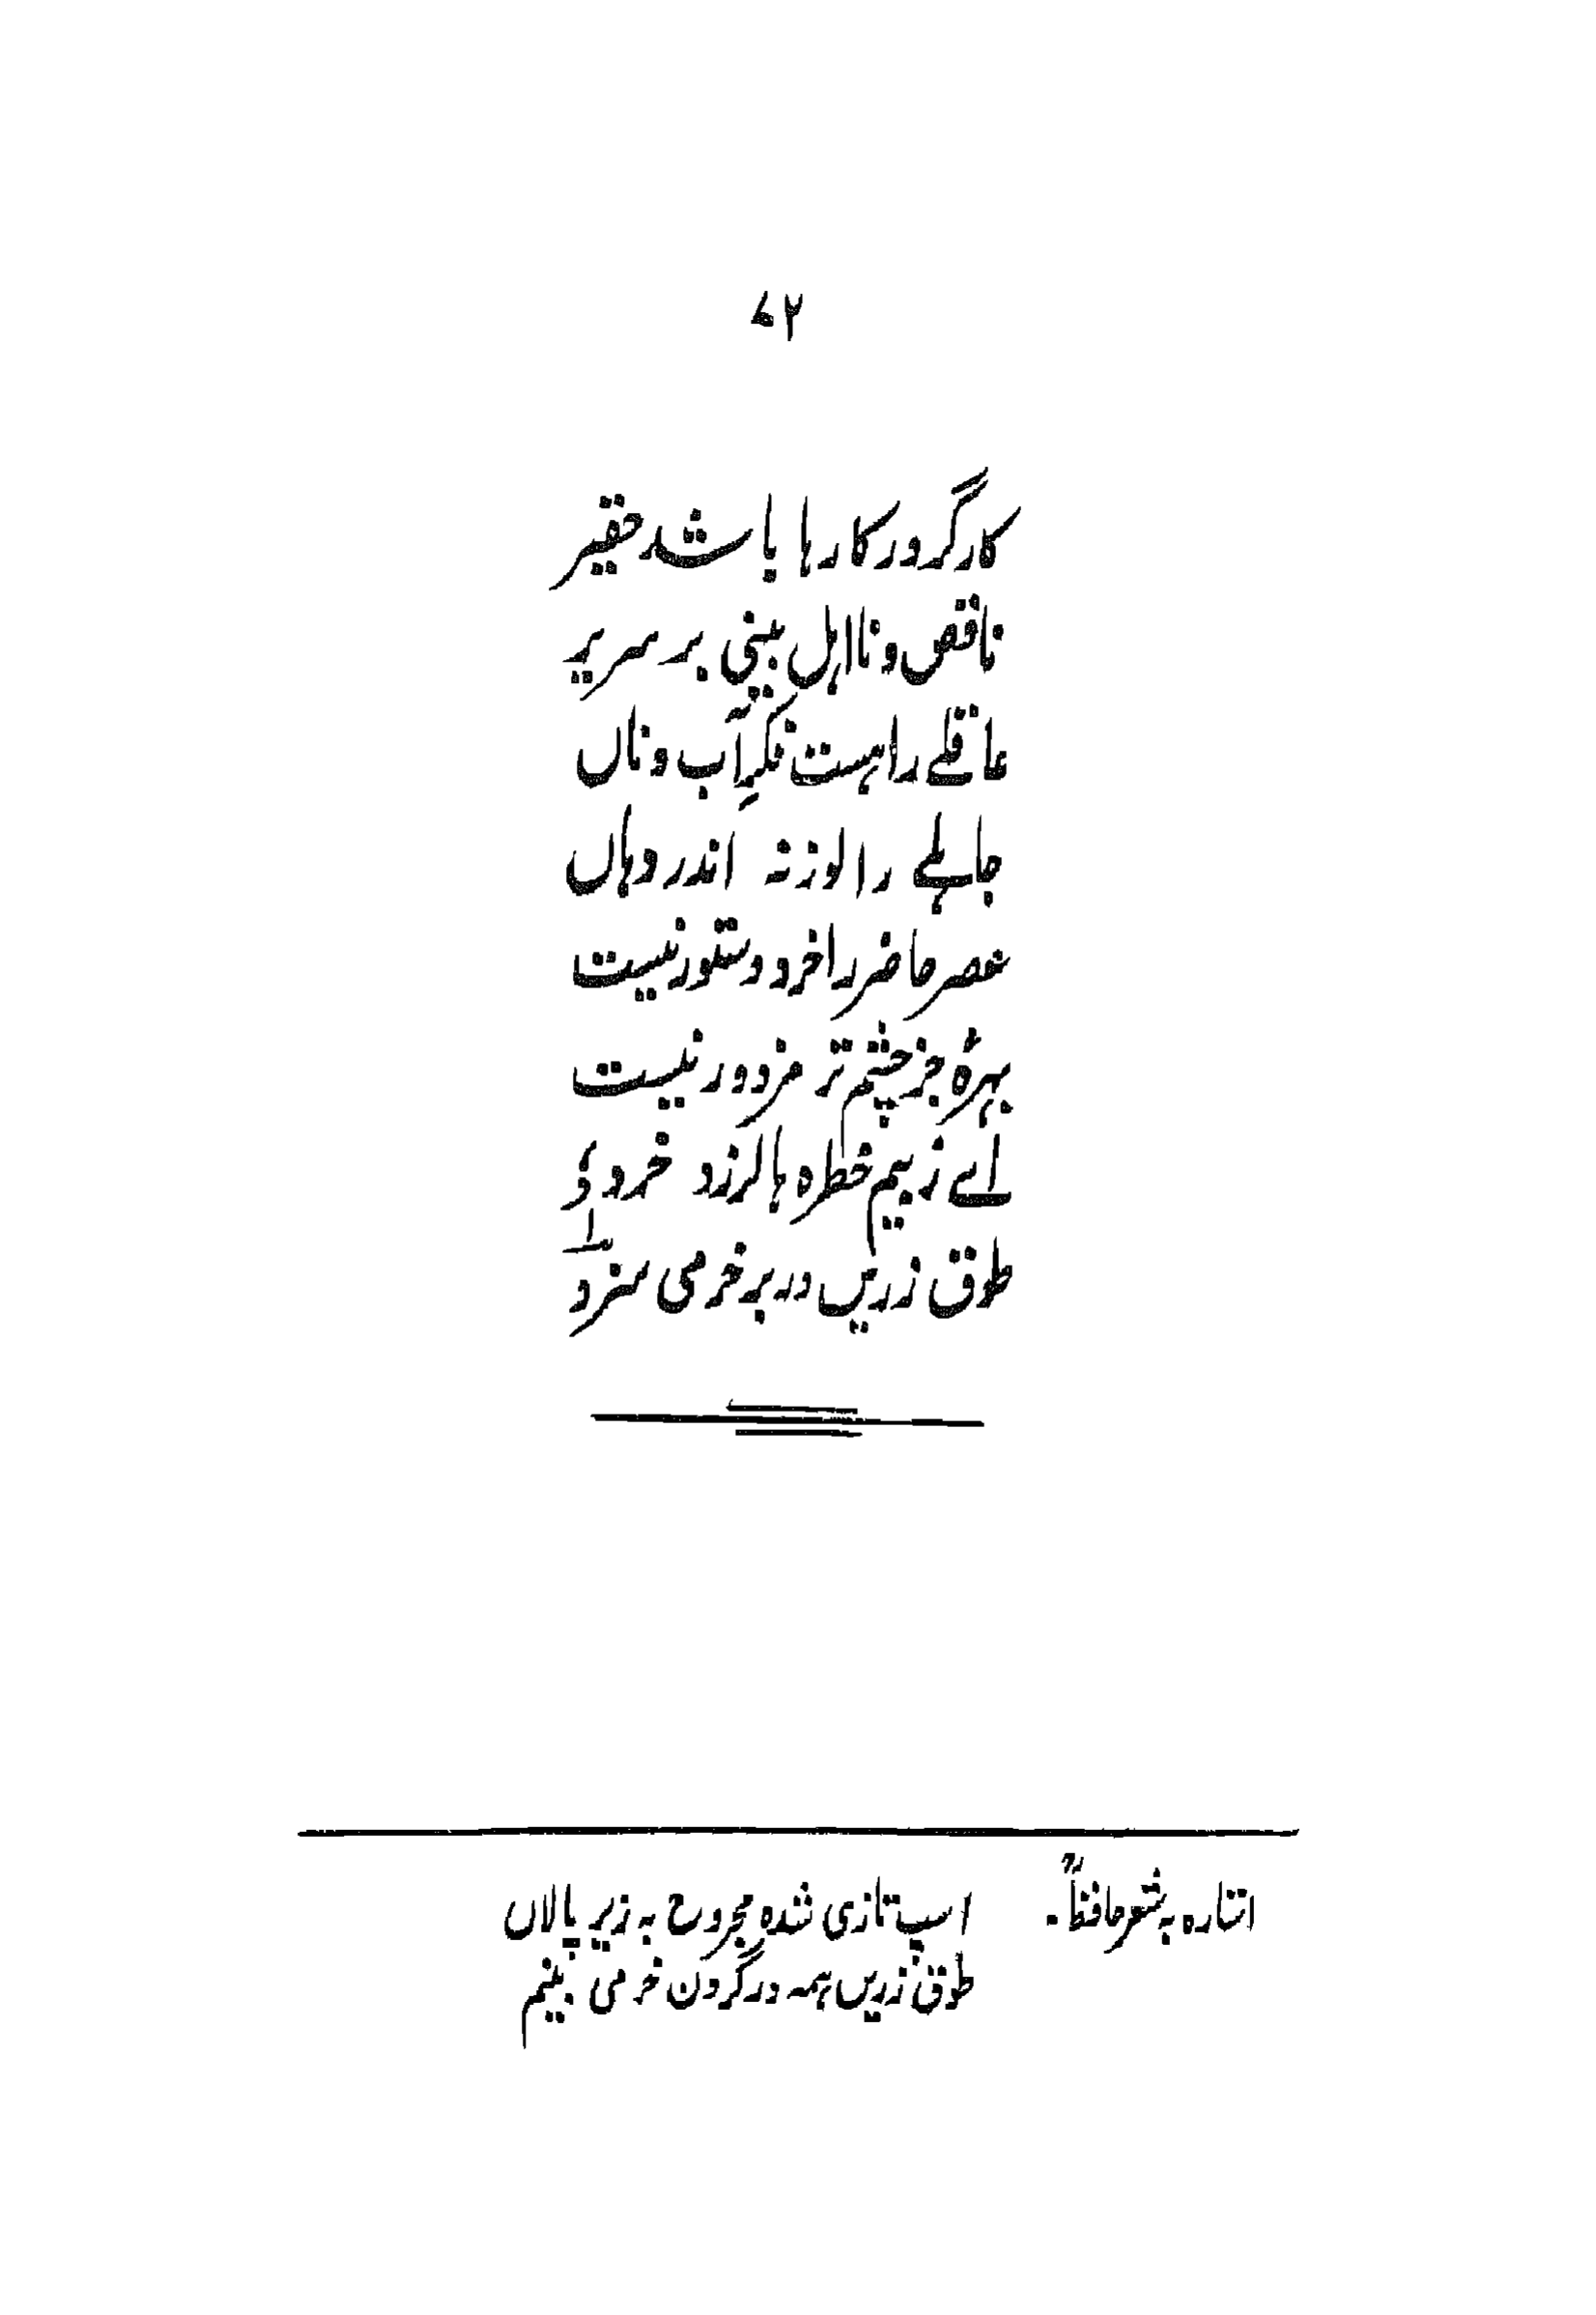 ۴۲
کارگر در کار ہا باشد حقیر
ناقص و نااہل بینی بر سریر
عاقلے را ہست فکرِ آب و ناں
جاہلے را لوزنہ اندر دہاں
عصر حاضر را خرد دستور نیست
بہرۂ جز چشم تر مزدور نیست
اے ز بیم خطرہ ہا لرزد خرد
طوق زریں در بر خر می سزد
اشارہ بہ شعر حافظؒ۔ اسپ تازی شدہ مجروح بہ زیر پالاں
طوق زریں ہمہ در گردن خر می بینم